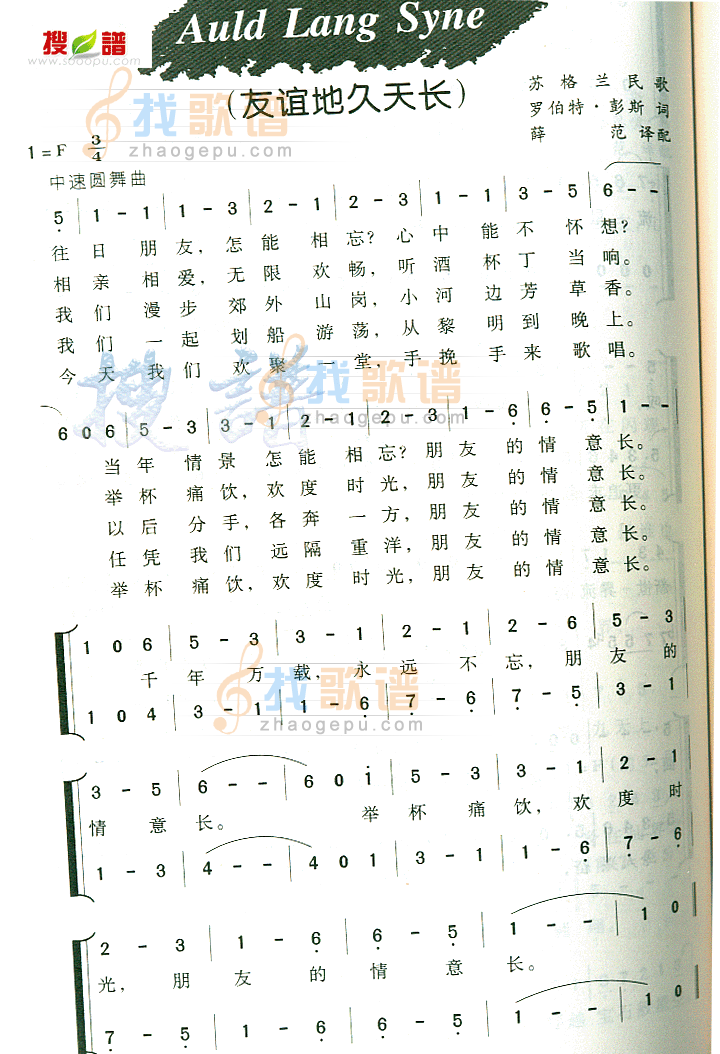 Auld Lang Syne
搜譜
www.sooopu.com
(友谊地久天长)
苏格兰民歌
罗伯特·彭斯 词
薛范 译配
找歌谱
zhaogepu.com
1=F 3/4
中速圆舞曲
5 | 1 - 1 | 1 - 3 | 2 - 1 | 2 - 3 | 1 - 1 | 3 - 5 | 6 - - |
往日朋友,怎能相忘?心中能不怀想?
相亲相爱,无限欢畅,听酒杯丁当响。
我们漫步郊外山岗,小河边芳草香。
我们一起划船游荡,从黎明到晚上。
今天我们欢聚一堂,手挽手来歌唱。
搜譜
找歌谱
zhaogepu.com
6 0 6 | 5 - 3 | 3 - 1 | 2 - 1 | 2 - 3 | 1 - 6 | 6 - 5 | 1 - - |
当年情景怎能相忘?朋友的情意长。
举杯痛饮,欢度时光,朋友的情意长。
以后分手,各奔一方,朋友的情意长。
任凭我们远隔重洋,朋友的情意长。
举杯痛饮,欢度时光,朋友的情意长。
1 0 6 | 5 - 3 | 3 - 1 | 2 - 1 | 2 - 6 | 5 - 3
千年万载,永远不忘,朋友的
1 0 4 | 3 - 1 | 1 - 6 | 7 - 6 | 7 - 5 | 3 - 1
找歌谱
zhaogepu.com
3 - 5 | 6 - - | 6 0 i | 5 - 3 | 3 - 1 | 2 - 1
情意长。举杯痛饮,欢度时
1 - 3 | 4 - - | 4 0 1 | 3 - 1 | 1 - 6 | 7 - 6
2 - 3 | 1 - 6 | 6 - 5 | 1 - - | 1 0
光,朋友的情意长。
7 - 5 | 1 - 6 | 6 - 5 | 1 - - | 1 0